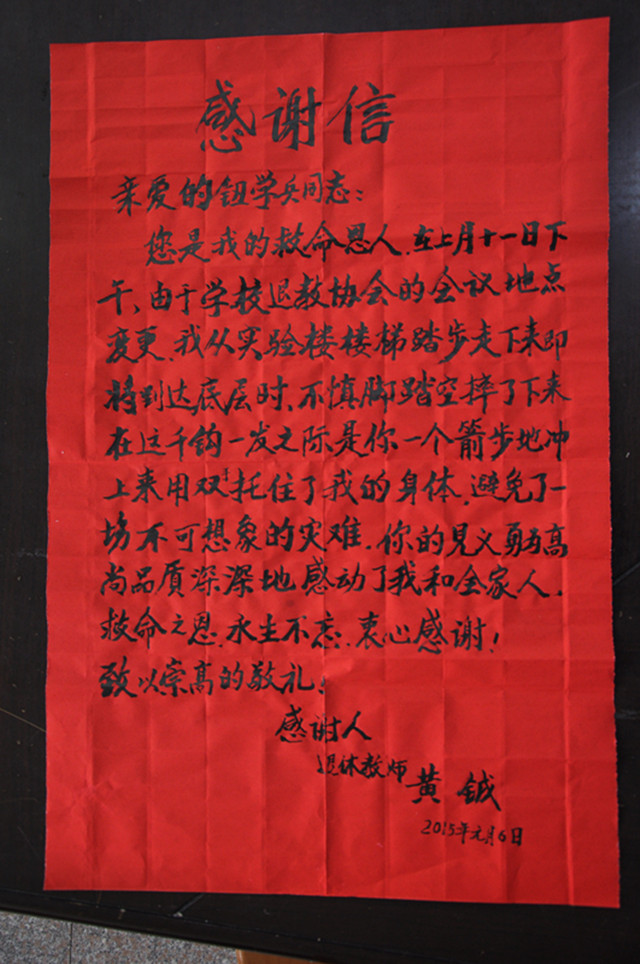 感谢信
亲爱的钮学兵同志：
您是我的救命恩人.在上月十一日下
午、由于学校退教协会的会议地点
变更.我从实验楼楼梯踏步走下来即
将到达底层时、不慎脚踏空摔了下来
在这千钧一发之际是你一个箭步地冲
上来用双托住了我的身体.避免了一
场不可想象的灾难.你的见义勇为高
尚品质深深地感动了我和全家人.
救命之恩.永生不忘.衷心感谢！
致以崇高的敬礼！
感谢人
退休教师 黄钺
2015年元月6日